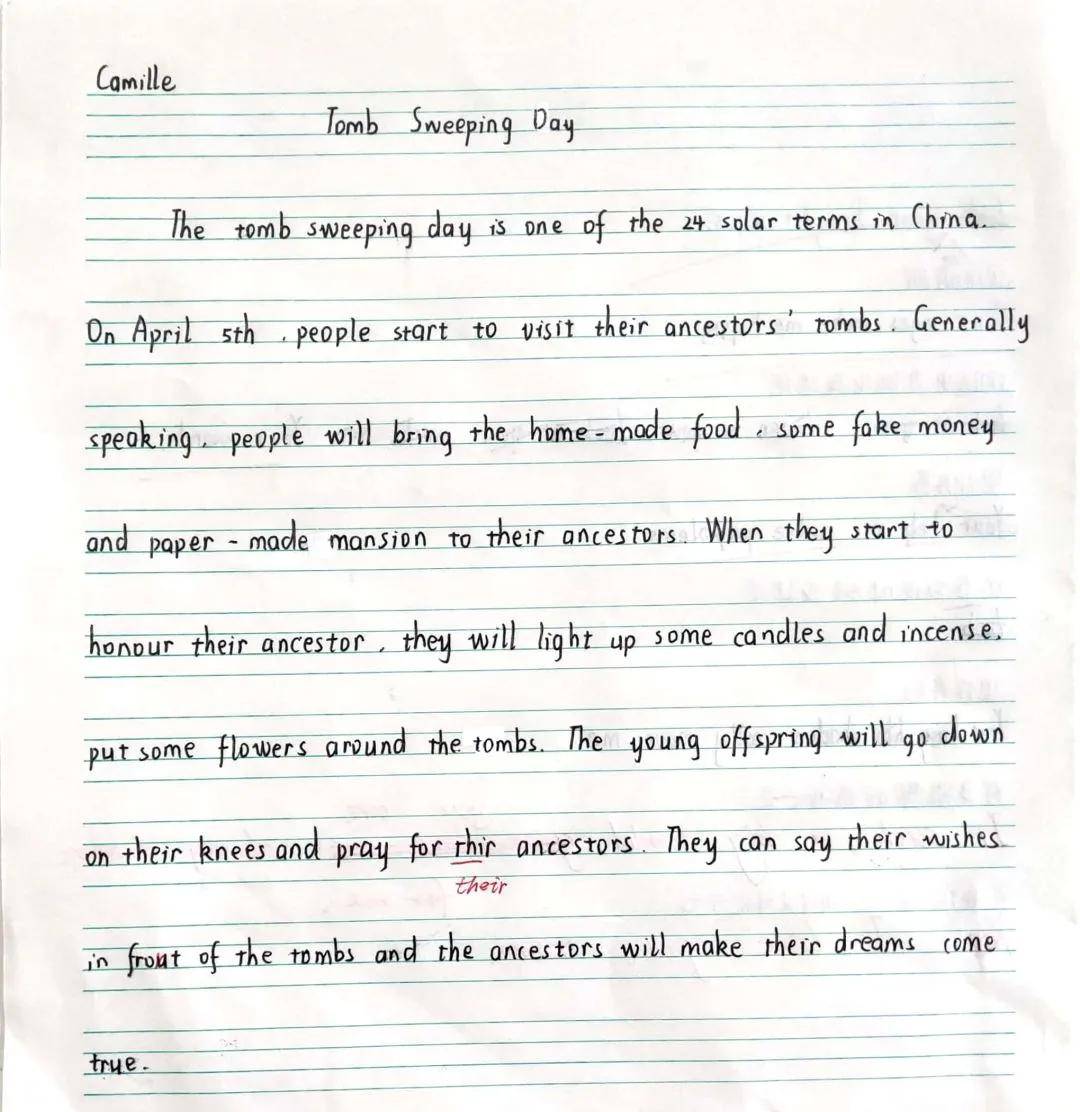 Camille
Tomb Sweeping Day
The tomb sweeping day is one of the 24 solar terms in China.
On April 5th , people start to visit their ancestors' tombs. Generally
speaking, people will bring the home-made food, some fake money
and paper-made mansion to their ancestors. When they start to
honour their ancestor, they will light up some candles and incense,
put some flowers around the tombs. The young offspring will go down
on their knees and pray for thir ancestors. They can say their wishes
their
in front of the tombs and the ancestors will make their dreams come
true.